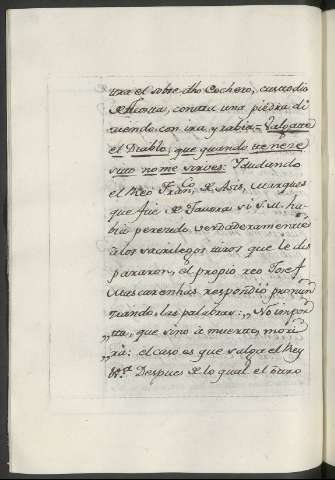 tra el sobre dho Cochero, custodio
de Acosta, contra una piedra di
ciendo con ira y rabia = Valgate
el Diablo, que quando te nece
sito no me sirves. Y dudando
el Reo Fran.co de Asis, Marques
que fue de Tavora si S. M. ha
bia perecido verdaderamente
a los sacrilegos tiros que le dis
pararon, el propio reo Josef
Mascarenhas respondió pronun
ciando las palabras: „ No impor
„ ta, que sino ha muerto, mori
„ rá: el caso es que salga el Rey
Despues de lo qual el otro